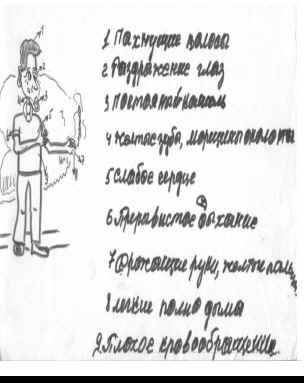 1 Пахнущие волосы
2 Раздражение глаз
3 Постоянный кашель
4 желтые зубы, морщинки около рта
5 Слабое сердце
6 Прерывистое дыхание
7 Дрожащие руки, желтые пальцы
8 легкие полно дыма
9 Плохое кровообращение